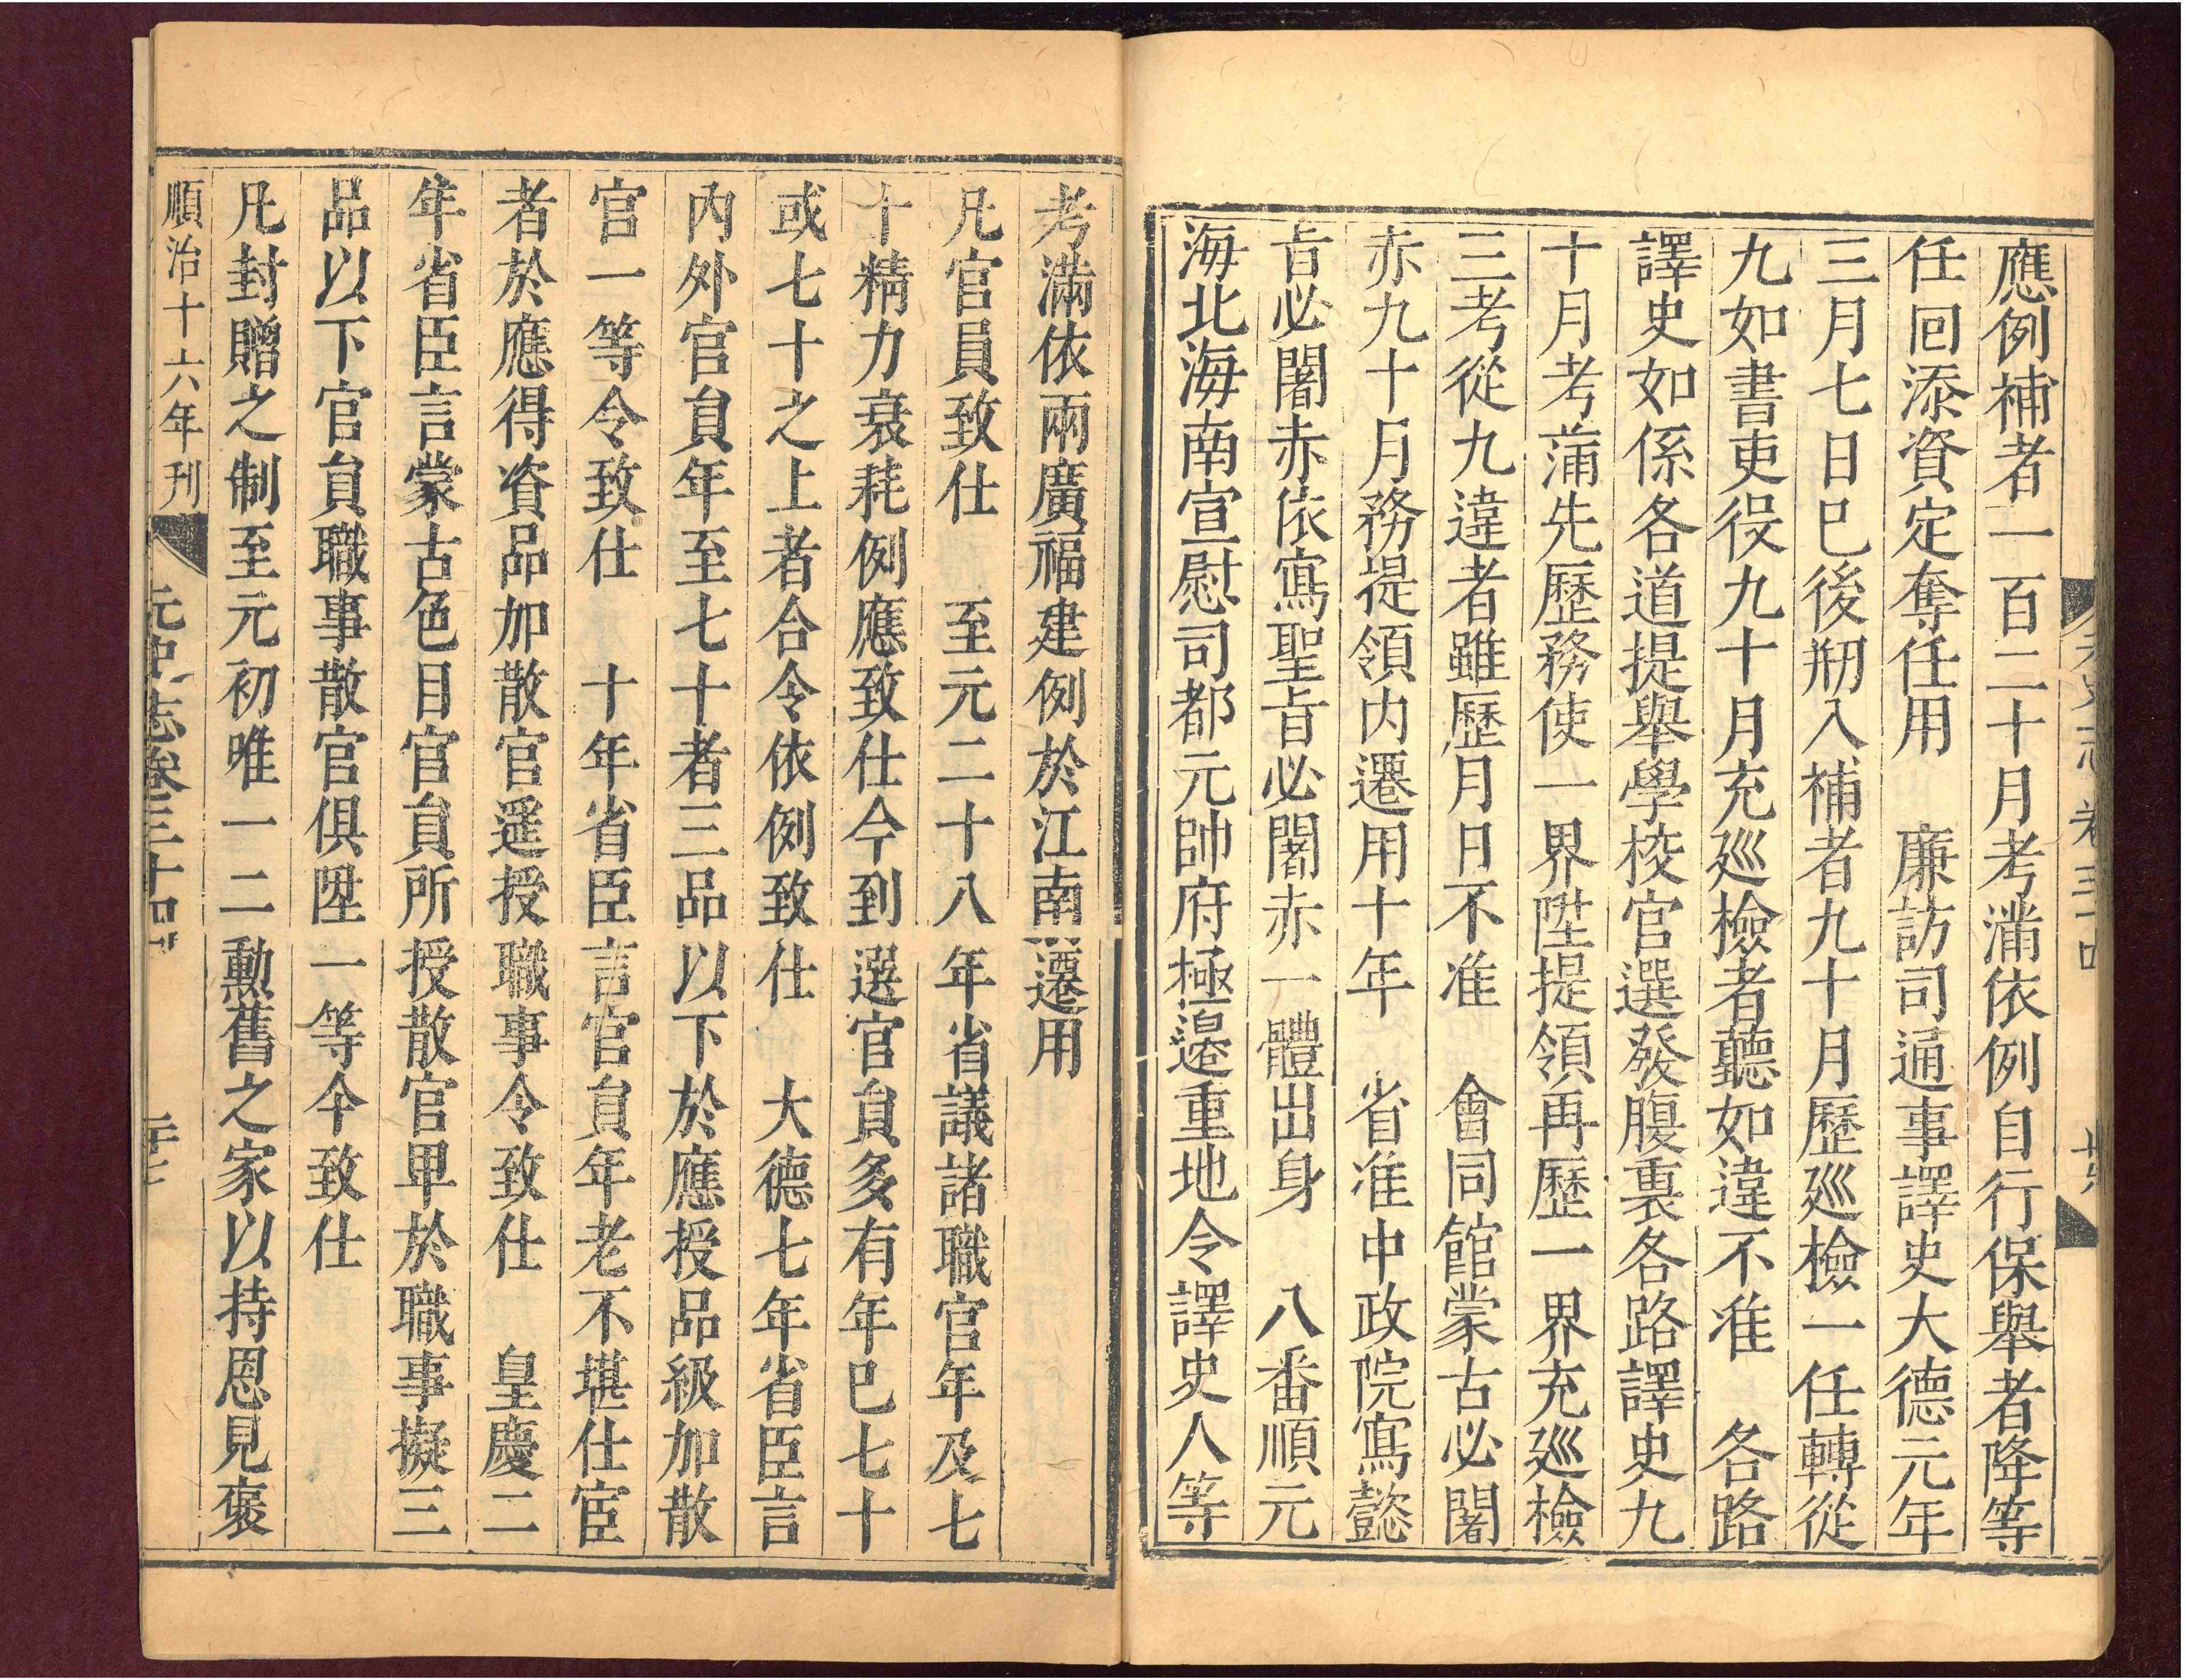 應例補者一百二十月考滿依例自行保舉者降等
任回添資定奪任用 廉訪司通事譯史大德元年
三月七日已後剏入補者九十月歷廵檢一任轉從
九如書吏役九十月充廵檢者聽如違不准 各路
譯史如係各道提舉學校官選發腹裏各路譯史九
十月考蒲先歷務使一界陞提領再歷一界充廵檢
三考從九違者雖歷月日不准 會同館蒙古必闍
赤九十月務提領内遷用十年 省准中政院寫懿
旨必闍赤依寫聖旨必闍赤一體出身 八番順元
海北海南宣慰司都元帥府極邊重地令譯史人等
考滿依兩廣福建例於江南遷用
凡官員致仕 至元二十八年省議諸職官年及七
十精力衰耗例應致仕今到選官負多有年巳七十
或七十之上者合令依例致仕 大德七年省臣言
内外官負年至七十者三品以下於應授品級加散
官一等令致仕 十年省臣言官負年老不堪仕宦
者於應得資品加散官遥授職事令致仕 皇慶二
年省臣言蒙古色目官負所授散官卑於職事擬三
品以下官負職事散官俱陞一等令致仕
凡封贈之制至元初唯一二勲舊之家以持恩見褒
順治十六年刊 元史志卷三十四